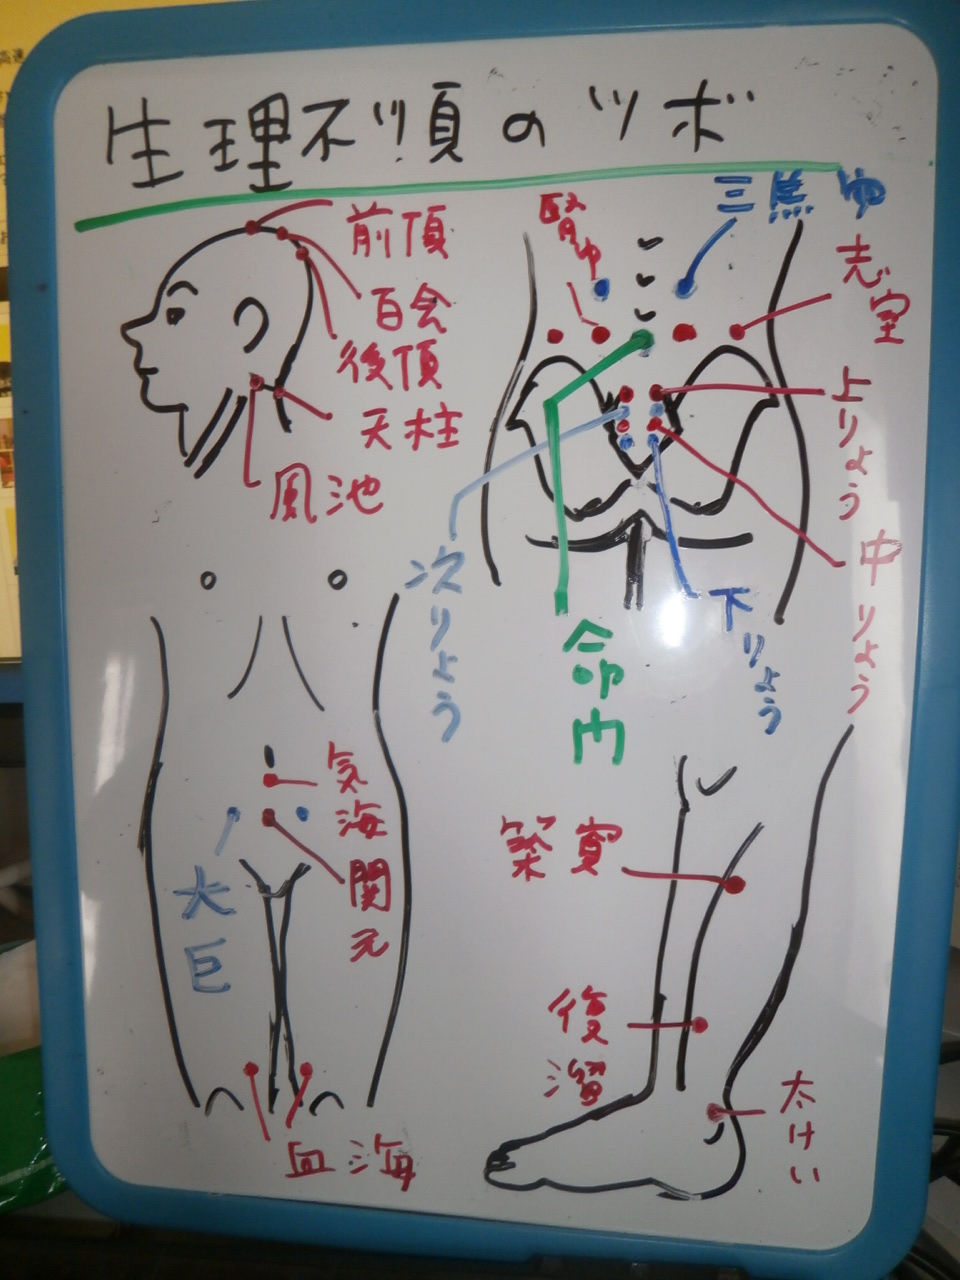 生理不順のツボ
前頂
百会
後頂
天柱
風池
腎ゆ
三焦ゆ
志室
上りょう
中りょう
下りょう
次りょう
命門
気海
関元
大巨
血海
築賓
復溜
太けい